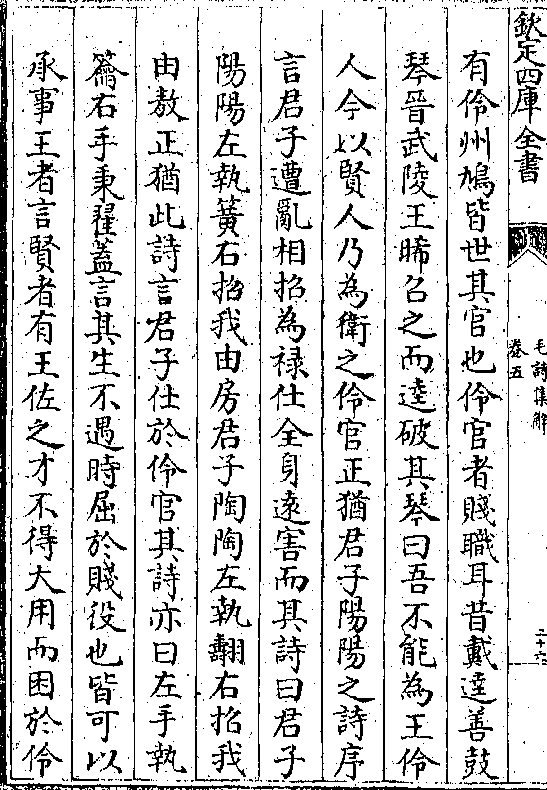 欽定四庫全書
毛詩集解
卷五
二十六
有伶州鳩皆世其官也伶官者賤職耳昔戴逵善鼓
琴晉武陵王晞召之而逵破其琴曰吾不能為王伶
人今以賢人乃為衛之伶官正猶君子陽陽之詩序
言君子遭亂相招為祿仕全身遠害而其詩曰君子
陽陽左執簧右招我由房君子陶陶左執翿右招我
由敖正猶此詩言君子仕於伶官其詩亦曰左手執
籥右手秉翟蓋言其生不遇時屈於賤役也皆可以
承事王者言賢者有王佐之才不得大用而困於伶